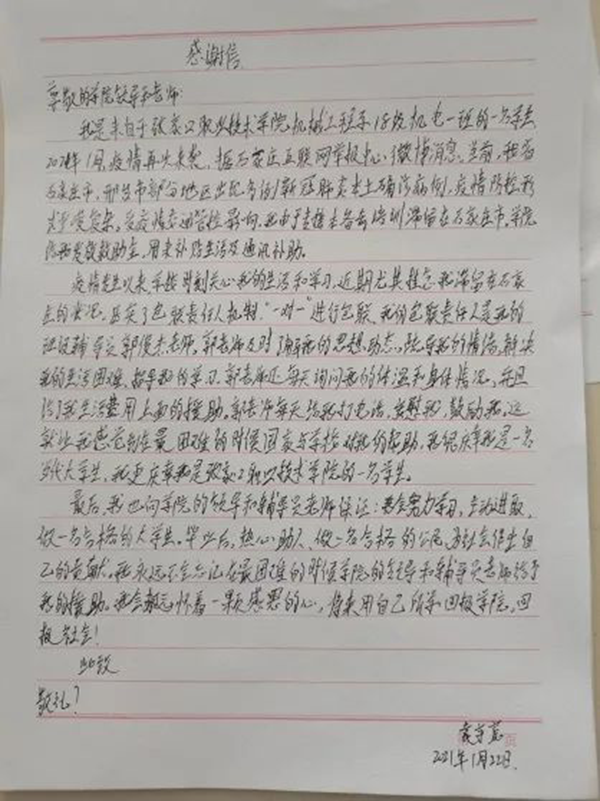 感谢信
尊敬的学院领导和老师:
我是来自于张家口职业技术学院,机械工程系18级机电一班的一名学生
2021年1月,疫情再次来袭,据石家庄互联网举报中心微博消息,当前,我省
石家庄市,邢台市部分地区出现多例新冠肺炎本土确诊病例,疫情防控形
势严峻复杂,受疫情交通管控影响,我由于专接本备考培训滞留在石家庄市,学院
给我发放救助金,用来补贴生活及通讯补助。
疫情发生以来,学校时刻关心我的生活和学习,近期尤其挂念我滞留石家
庄的情况,落实了包联责任人机制,"一对一"进行包联,我的包联责任人是我的
班级辅导员郭俊杰老师,郭老师及时了解我的思想动态,疏导我的情绪,解决
我的生活困难,指导我的学习,郭老师还每天询问我的体温和身体情况,并且
给了我生活费用上面的援助,郭老师每天给我打电话,安慰我,鼓励我,这
就让我感觉到在最困难的时候国家与学校对我的帮助,我很庆幸我是一名
当代大学生,我更庆幸我是张家口职业技术学院的一名学生。
最后,我也向学院的领导和辅导员老师保证:我会努力学习,主动进取,
做一名合格的大学生。毕业后,热心助人,做一名合格的公民,为社会作出自
己的贡献。我永远不会忘记在最困难的时候学院的领导和辅导员老师给予
我的援助。我会永远怀着一颗感恩的心,将来用自己所学回报学院,回
报社会!
此致
敬礼!
2021年1月22日.